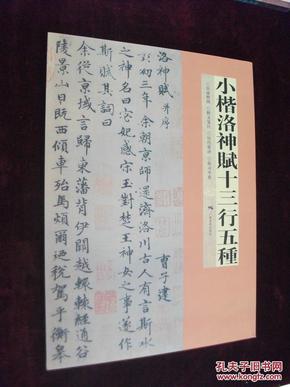 小楷洛神賦十三行五種
洛神賦 并序
曹子建
黃初三年余朝京師還濟洛川古人有言斯水
之神名曰宓妃感宋玉對楚王神女之事遂作
斯賦其詞曰
余從京域言歸東藩背伊闕越轘轅經通谷
陵景山日既西傾車殆馬煩爾迺稅駕乎蘅皋